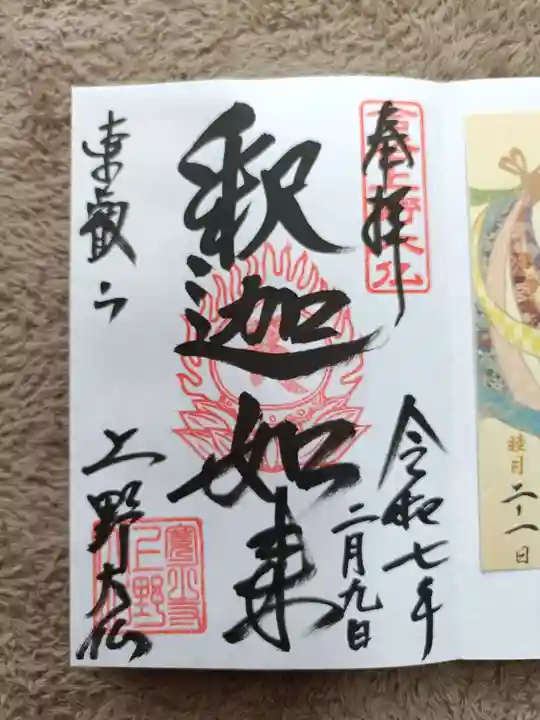 奉拝
令和七年
二月九日
釈迦如来
東叡山
上野大仏
上野
睦月
二十一日